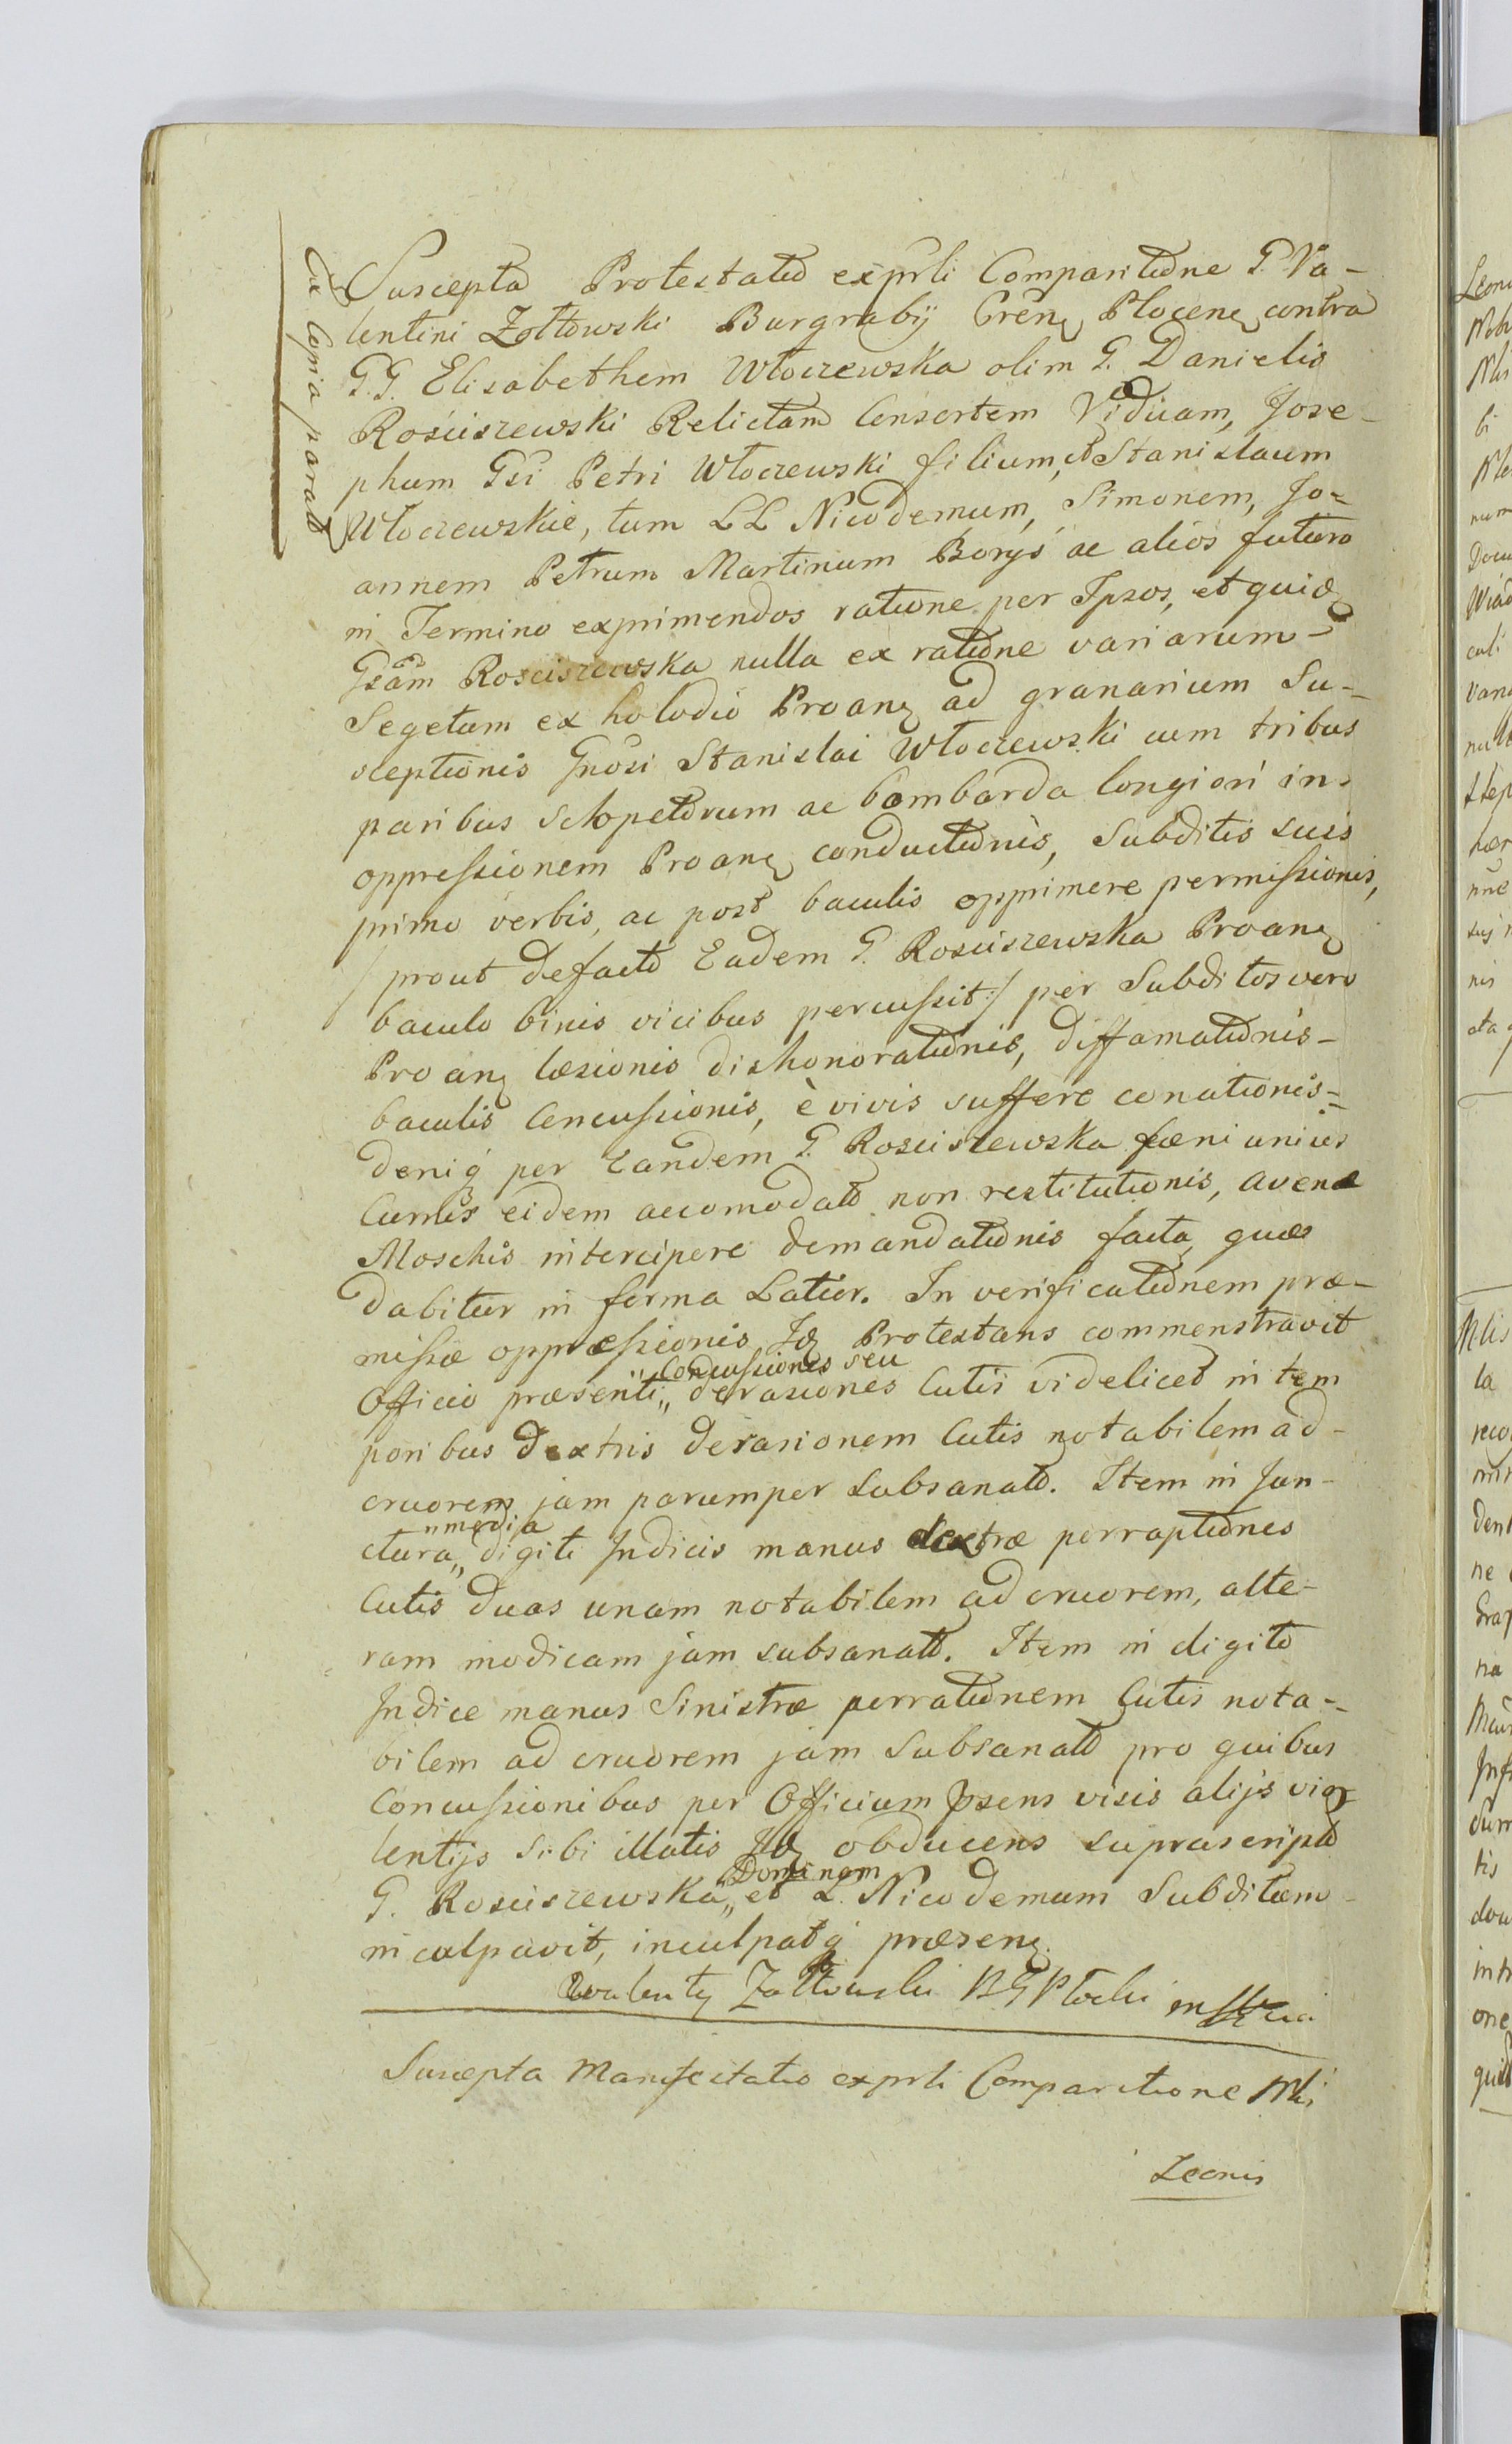 Ex Copia parata
Suscepta Protestatio exprli Comparitione G. Va-
lentini Zołtowski Burgrabij Cren Plocen contra
G.G. Elisabethem Włoczewska olim G. Danielis
Rosciszewski Relictam Consortem Viduam, Jose-
phum Gsi Petri Włoczewski filium, et Stanislaum
Włoczewskie, tum LL Nicodemum, Simonem, Jo-
annem Petrum Martinum Borys ac alios futuro
in Termino exprimendos ratione per Ipsos, et quid
Gsam Rosciszewska nulla ex ratione variarum
Segetum ex holodio Proan ad granarium Su-
sceptionis Gnosi Stanislai Włoczewski cum tribus
paribus Sclopetorum ac bombarda longiori in
oppressionem Proan conductionis, Subditis suis
primo verbis, ac post baculis opprimere permissionis,
/ prout defacto Eadem G. Rosciszewska Proan
baculo binis vicibus percussit:/ per Subditos vero
Proan læsionis dishonorationis, diffamationis-
baculis Concussionis, è vivis suffere conationis-
deniq per Eandem G. Rosciszewska fæni unius
Currus eidem accomodato non restitutionis, avenæ
Moschis intercipere demandationis facta, quæ
dabitur in forma Latior. In verificationem præ-
missæ oppræssionis Id Protestans commonstravit
Concussiones seu
Officio præsenti,, derasiones Cutis videlicet in tem
poribus dextris derasionem Cutis notabilem ad-
cruorem jam parumper subsanato. Item in Jun-
media
ctura,, digiti Indicis manus dextræ perraptiones
Cutis duas unam notabilem ad cruorem, alte-
ram modicam jam subsanato. Item in digito
Indice manus Sinistræ perrationem Cutis nota-
bilem ad cruorem jam Subsanato pro quibus
Concussionibus per Officium psens visis alijs vio
lentijs sibi illatis Id obducens suprascripto
Dominam
G. Rosciszewska,, et L. Nicodemum Subditum
inculpavit, inculpatq præsen
Walenty Zołtowski B G Płocki
Suscepta Manifestatio exprli Comparitione Mli
Leonis